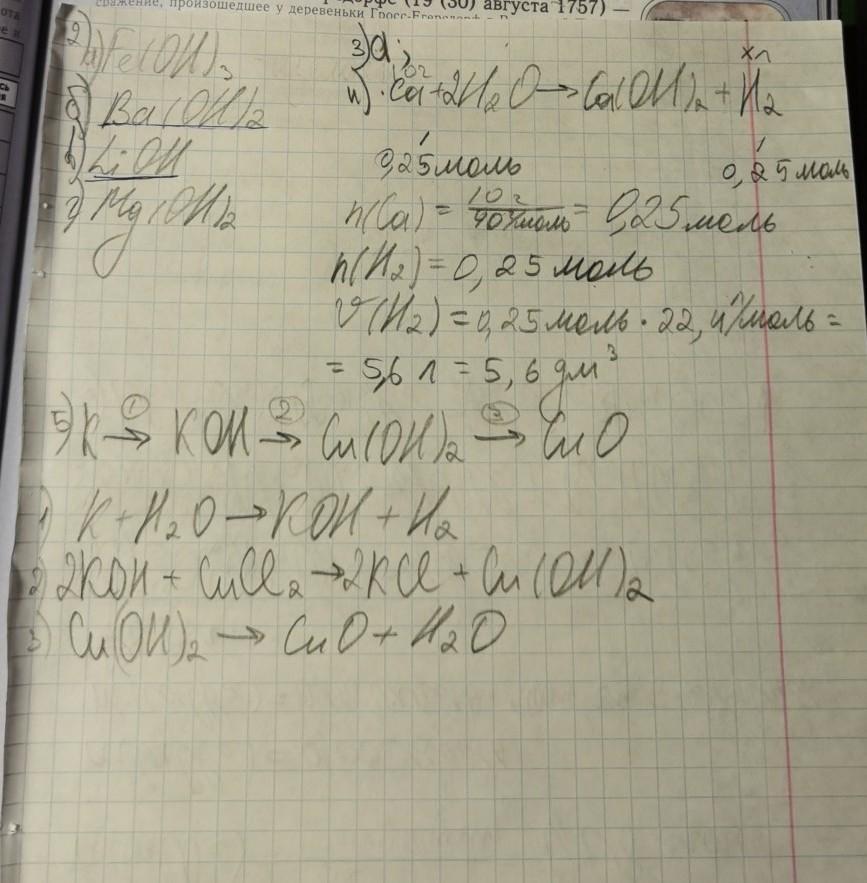 сражение, произошедшее у деревеньки Гросс-Егерсдорф
(19 (30) августа 1757) —
2)
а) Fe(OH)₃
б) Ba(OH)₂
в) LiOH
г) Mg(OH)₂
3) а;
10г xл
4) Ca+2H₂O→Ca(OH)₂+H₂
0,25моль 0,25моль
n(Ca) = 10г/40г/моль = 0,25моль
n(H₂)=0,25моль
V(H₂)=0,25моль·22,4л/моль=
= 5,6 л = 5,6 дм³
5) K →① KOH →② Cu(OH)₂ →③ CuO
1) K+H₂O→KOH+H₂
2) 2KOH + CuCl₂→2KCl+Cu(OH)₂
3) Cu(OH)₂→CuO+H₂O